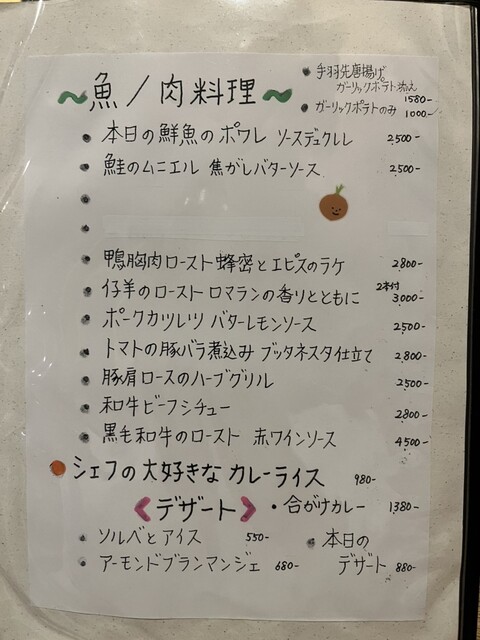 ~魚/肉料理~
• 手羽先唐揚げ
ガーリックポテト添え 1580-
• ガーリックポテトのみ 1000-
• 本日の鮮魚のポワレ ソースデュクレレ 2,500-
• 鮭のムニエル 焦がしバターソース 2,500-
• 鴨胸肉ロースト 蜂蜜とエピスのラケ 2,800-
• 仔羊のロースト ロマランの香りとともに 2本付 3,000-
• ポークカツレツ バターレモンソース 2,500-
• トマトの豚バラ煮込み プッタネスタ仕立て 2,800-
• 豚肩ロースのハーブグリル 2,500-
• 和牛ビーフシチュー 2,800-
• 黒毛和牛のロースト 赤ワインソース 4,500-
• シェフの大好きなカレーライス 980-
《デザート》 ・合がけカレー 1,380-
• ソルベとアイス 550-
• アーモンドブランマンジェ 680-
• 本日の
デザート 880-